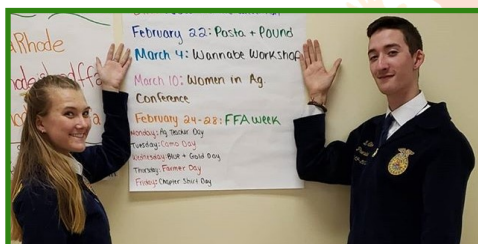 Rhode
February 22: Pasta + Pound
March 4: Wannabe Workshop
March 10: Women in Ag.
Conference
February 24-28: FFA Week
Monday: Ag Teacher Day
Tuesday: Camo Day
Wednesday: Blue + Gold Day
Thursday: Farmer Day
Friday: Chapter Shirt Day